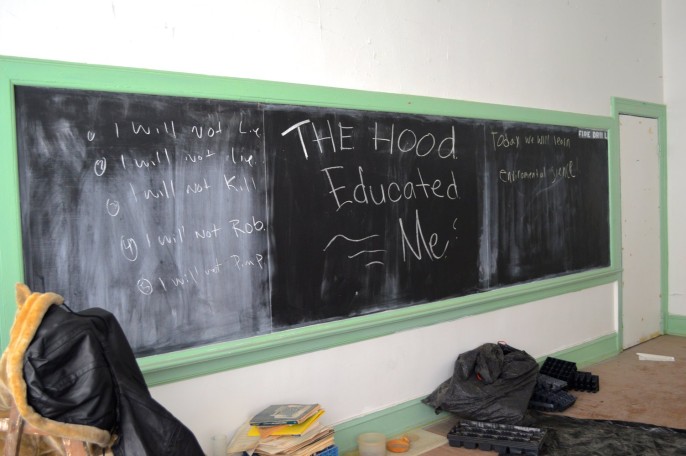 ① I will not Lie.
② I will not lie.
③ I will not Kill
④ I will not Rob.
⑤ I will not Pimp.
THE HOOD
Educated
Me!
FIRE DRILL
Today we will learn